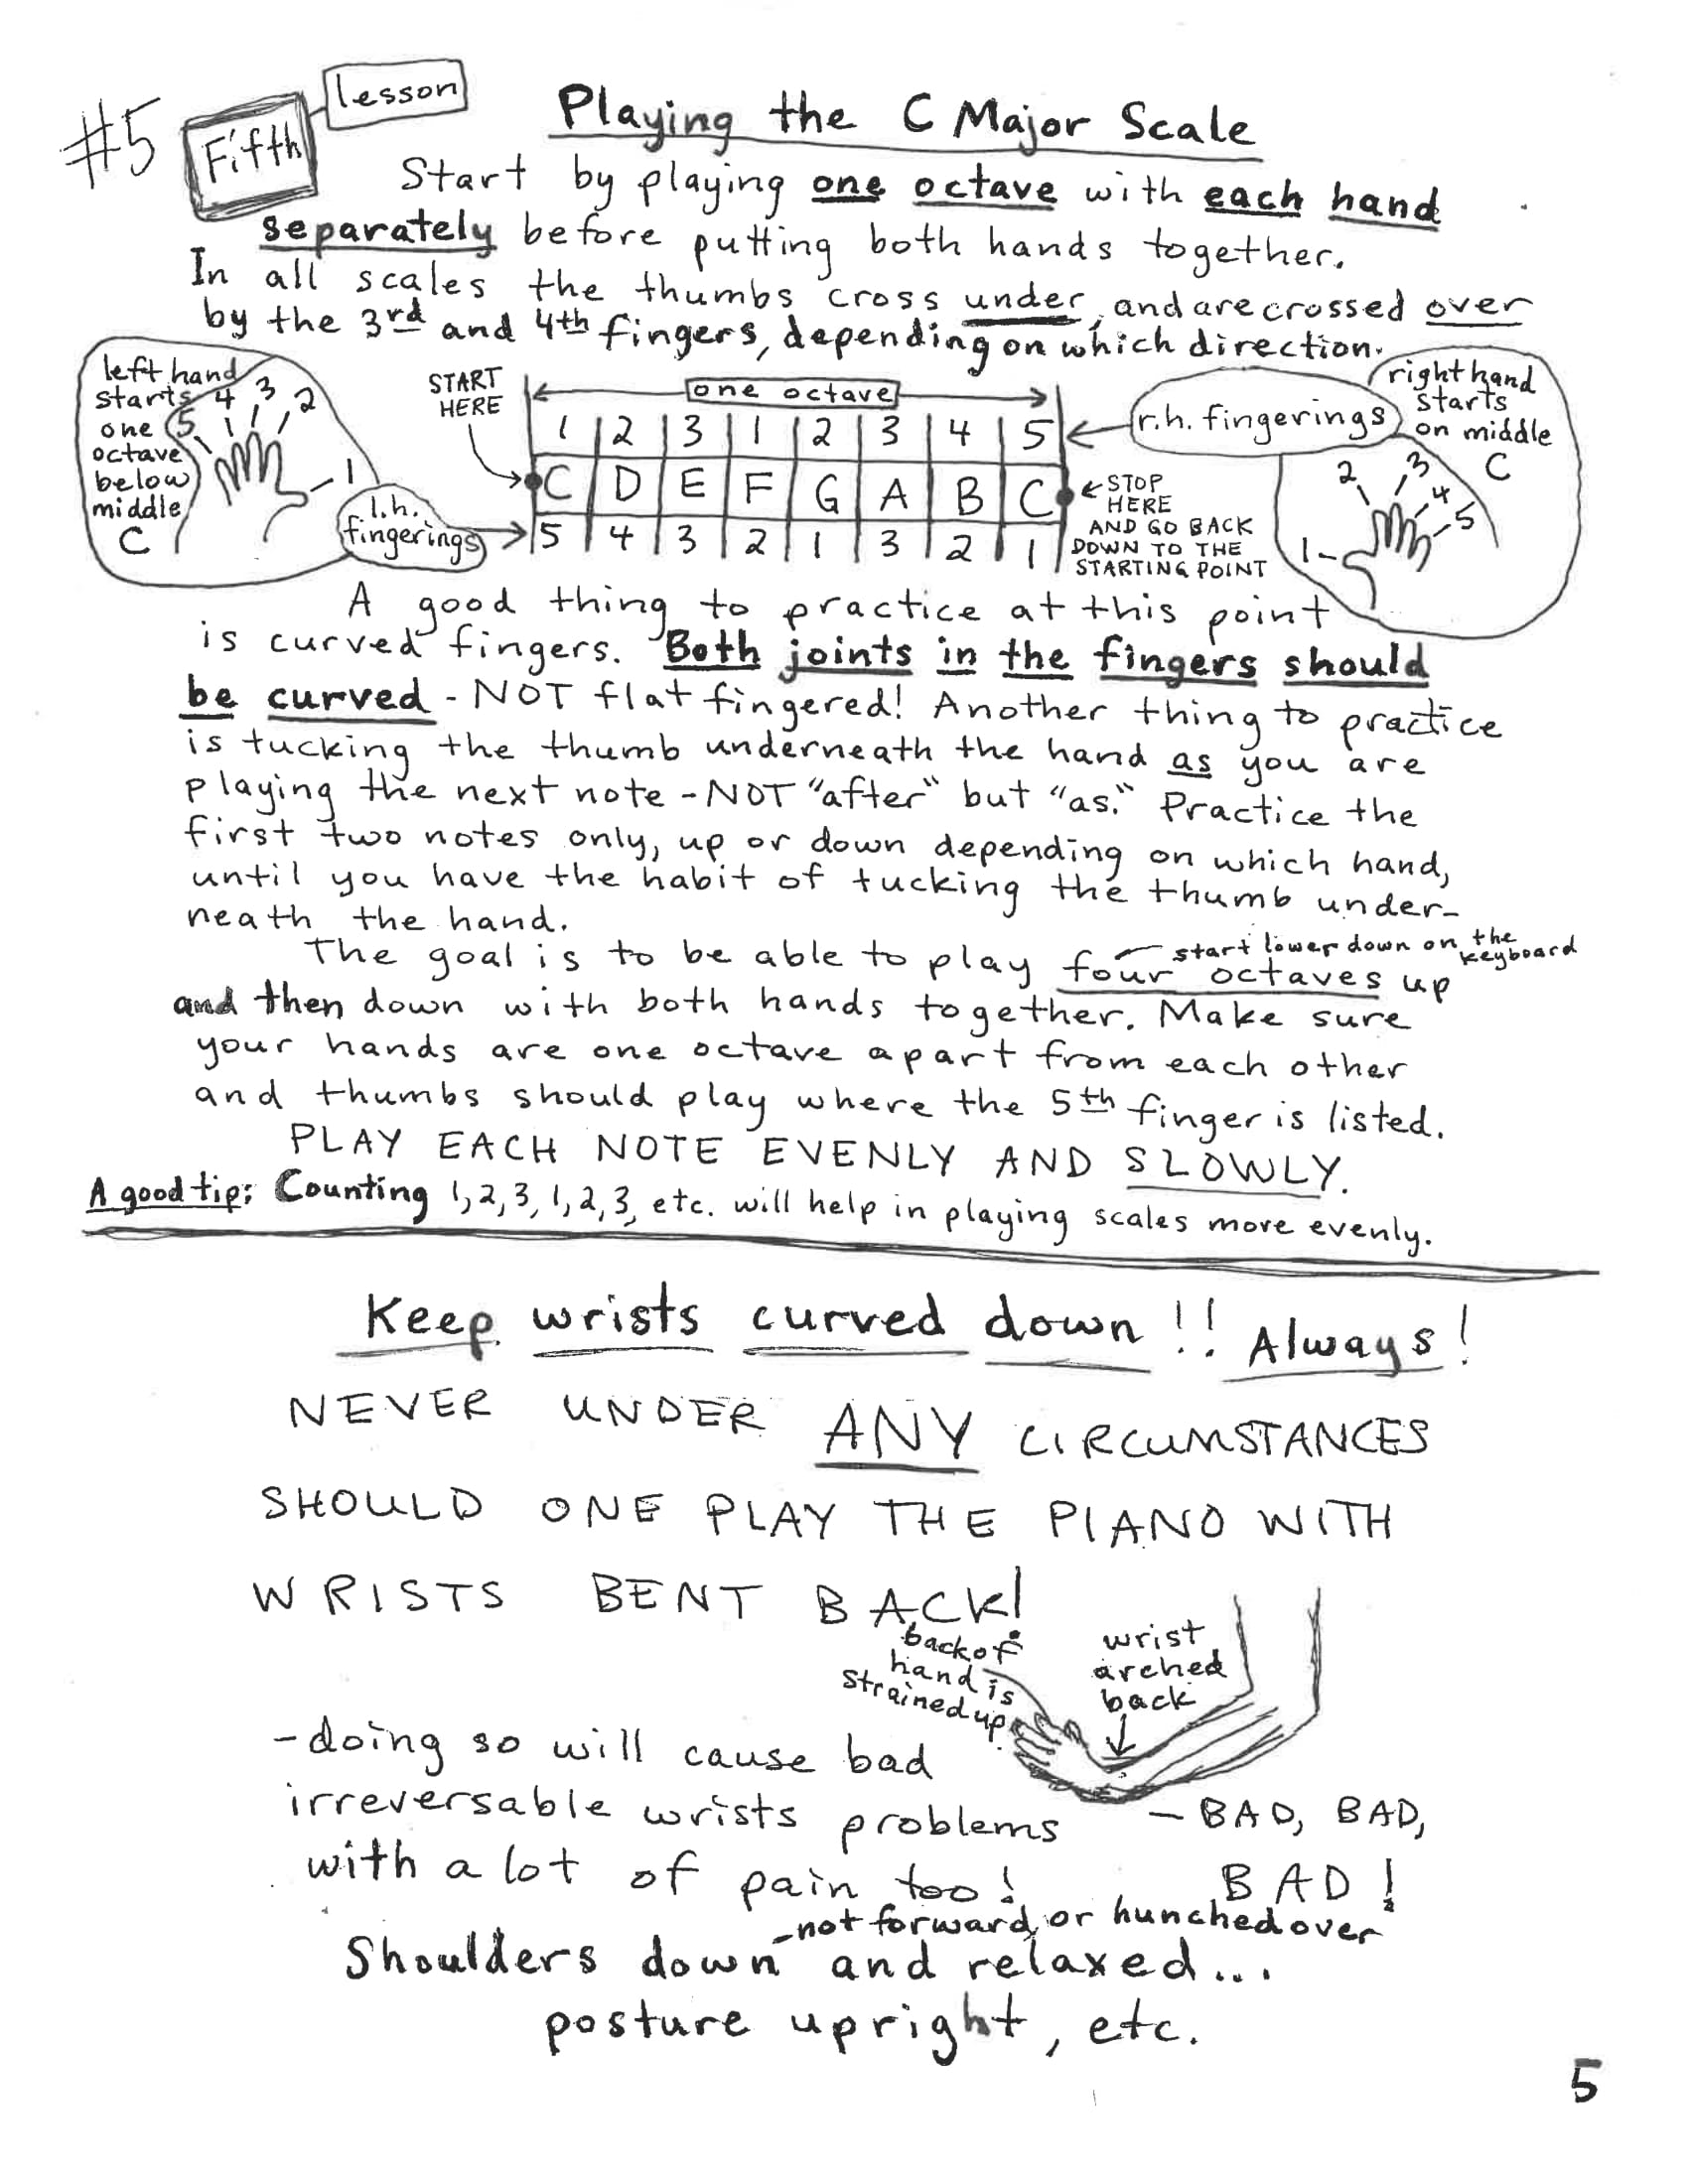 #5 Fifth lesson
Playing the C Major Scale
Start by playing one octave with each hand
separately before putting both hands together.
In all scales the thumbs cross under, and are crossed over
by the 3rd and 4th fingers, depending on which direction.
left hand
starts
one
octave
below
middle
C
5 4 3 2 1
l.h.
fingerings
START
HERE
one octave
1 2 3 1 2 3 4 5
C D E F G A B C
5 4 3 2 1 3 2 1
r.h. fingerings
STOP
HERE
AND GO BACK
DOWN TO THE
STARTING POINT
right hand
starts
on middle
C
1 2 3 4 5
A good thing to practice at this point
is curved fingers. Both joints in the fingers should
be curved - NOT flat fingered! Another thing to practice
is tucking the thumb underneath the hand as you are
playing the next note - NOT "after" but "as." Practice the
first two notes only, up or down depending on which hand,
until you have the habit of tucking the thumb under-
neath the hand.
The goal is to be able to play four octaves up
start lower down on the
keyboard
and then down with both hands together. Make sure
your hands are one octave apart from each other
and thumbs should play where the 5th finger is listed.
PLAY EACH NOTE EVENLY AND SLOWLY.
A good tip: Counting 1, 2, 3, 1, 2, 3, etc. will help in playing scales more evenly.
Keep wrists curved down!! Always!
NEVER UNDER ANY CIRCUMSTANCES
SHOULD ONE PLAY THE PIANO WITH
WRISTS BENT BACK!
back of
hand is
strained up
wrist
arched
back
-doing so will cause bad
irreversable wrists problems
with a lot of pain too!
- BAD, BAD,
BAD!
-not forward, or hunched over
Shoulders down and relaxed...
posture upright, etc.
5